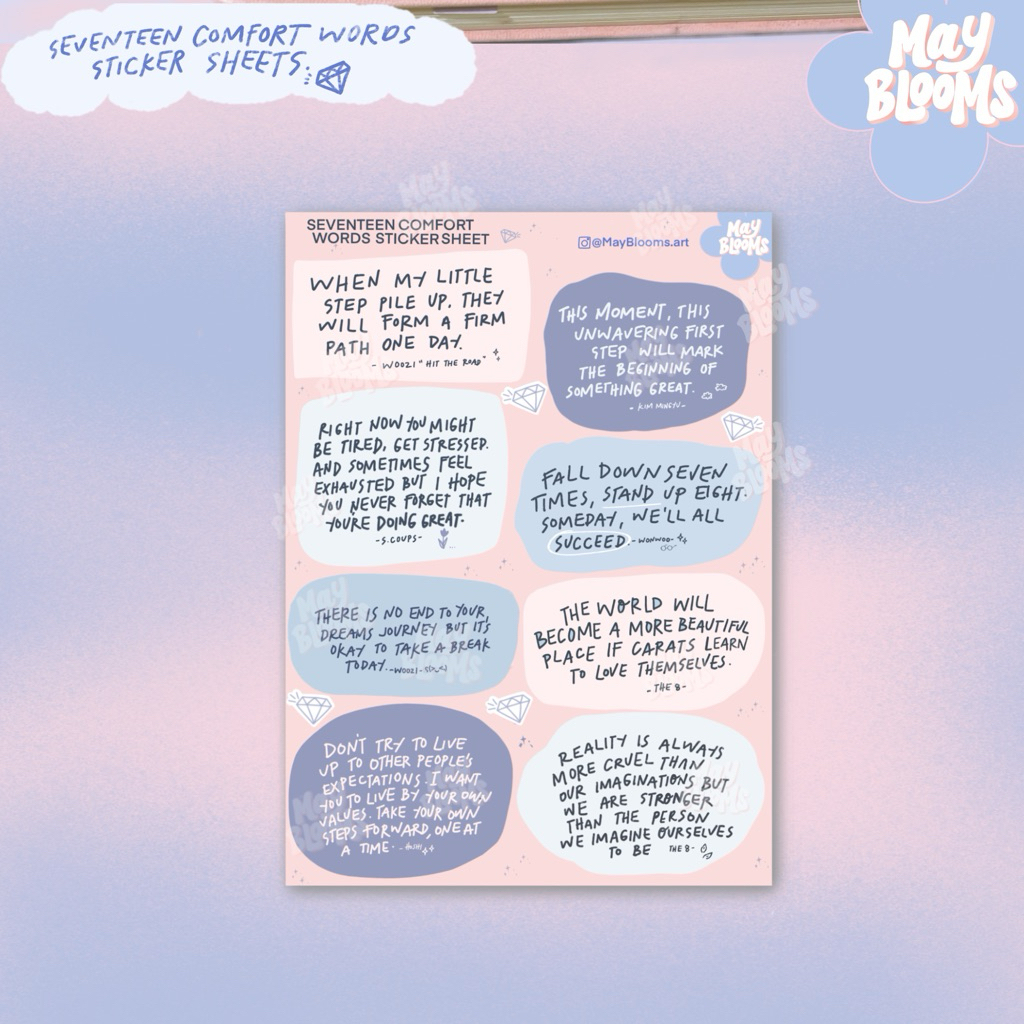 SEVENTEEN COMFORT WORDS
STICKER SHEETS.
May
BLOOMS
SEVENTEEN COMFORT
WORDS STICKER SHEET
@MayBlooms.art
May
BLOOMS
WHEN MY LITTLE
STEP PILE UP. THEY
WILL FORM A FIRM
PATH ONE DAY.
- WOOZI "HIT THE ROAD"
THIS MOMENT, THIS
UNWAVERING FIRST
STEP WILL MARK
THE BEGINNING OF
SOMETHING GREAT.
- KIM MINGYU-
RIGHT NOW YOU MIGHT
BE TIRED, GET STRESSED.
AND SOMETIMES FEEL
EXHAUSTED BUT I HOPE
YOU NEVER FORGET THAT
YOU'RE DOING GREAT.
-S.COUPS-
FALL DOWN SEVEN
TIMES, STAND UP EIGHT.
SOMEDAY, WE'LL ALL
SUCCEED. -WONWOO-
THERE IS NO END TO YOUR
DREAMS JOURNEY, BUT IT'S
OKAY TO TAKE A BREAK
TODAY. -WOOZI-
THE WORLD WILL
BECOME A MORE BEAUTIFUL
PLACE IF CARATS LEARN
TO LOVE THEMSELVES.
- THE 8-
DON'T TRY TO LIVE
UP TO OTHER PEOPLE'S
EXPECTATIONS. I WANT
YOU TO LIVE BY YOUR OWN
VALUES. TAKE YOUR OWN
STEPS FORWARD, ONE AT
A TIME. -HOSHI
REALITY IS ALWAYS
MORE CRUEL THAN
OUR IMAGINATIONS BUT
WE ARE STRONGER
THAN THE PERSON
WE IMAGINE OURSELVES
TO BE THE 8-